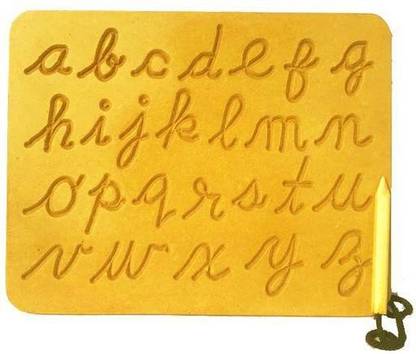 a b c d e f g
h i j k l m n
o p q r s t u
v w x y z z